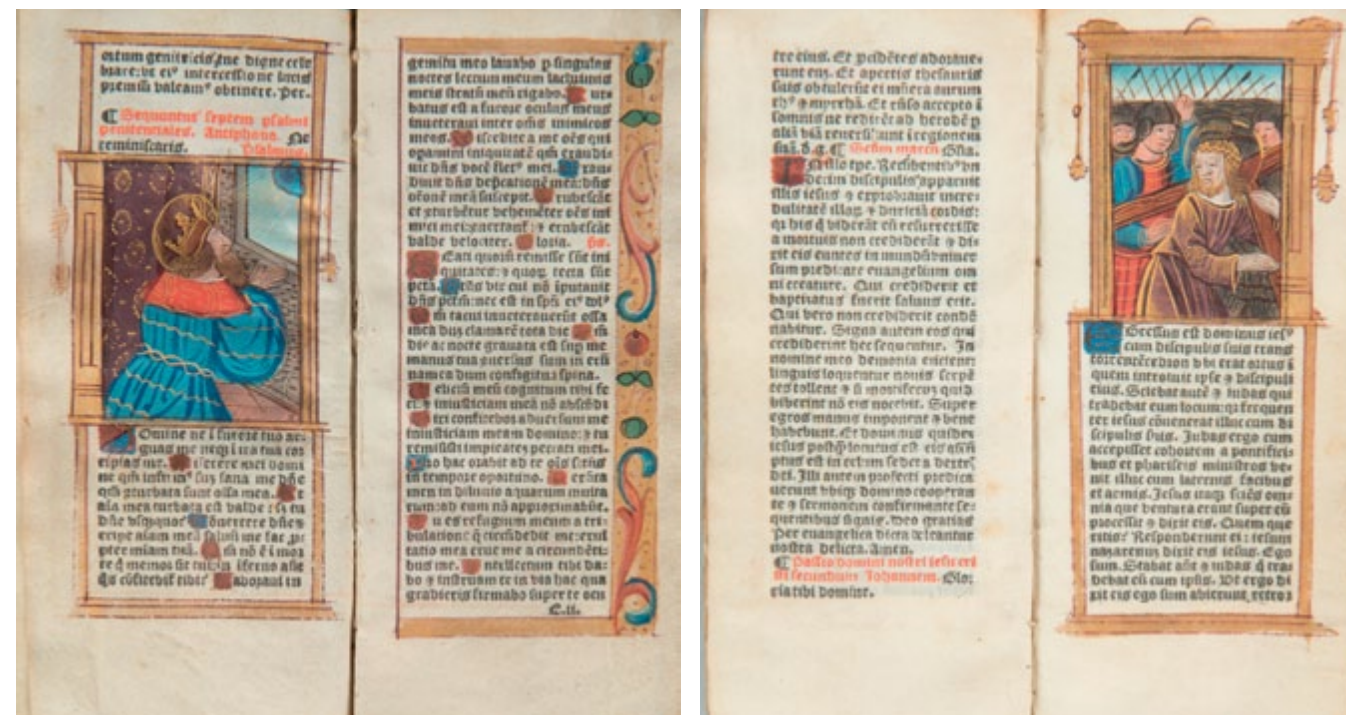 ortum genitricis tue digne cele
brare: ut eiꝰ intercessione
premia obtinere. Per.
¶ Sequuntur septem psalmi
penitenciales. Antiphona. Ne
reminiscaris. Psalmus.
Omine ne ī furore tuo ar-
guas me neqȝ ī ira tua cor
ripias me. Miserere mei domi
ne qm̄ infirmꝰ suȝ sana me dn̄e
qm̄ ꝯturbata sunt ossa mea. Et
ala mea turbata est valde: sȝ tu
dn̄e vsquequo: Conuertere dn̄e ⁊
eripe aīam meā saluū me fac ꝓ-
pter mīam tuā. Qm̄ nō ē ī mor
te q̄ memor sit tui: in īferno aūt
q̄s cōfitebit̄ tibi: Laboraui in
gemitu meo lauabo ꝑ singulas
noctes lectum meum lachrimis
meis stratū meū rigabo. Tur-
batus est a furore oculus meus
inueteraui inter om̄s inimicos
meos. Discedite a me oēs qui
opamini iniquitatē qm̄ exaudi-
uit dn̄s vocē fletꝰ mei. Exau-
diuit dn̄s dep̄cationē meā: dn̄s
oēonē meā suscepit. Erubescāt
et ꝯturbētur vehemēter oēs ini
mici mei: ꝯuertant̄ ⁊ erubescāt
valde velociter. Gloria. ps.
Eati quorū remisse sūt ini
quitates: ⁊ quoȝ tecta sūt
pctā. Beatꝰs vir cui nō īputauit
dn̄s pctm̄: nec est in spū eiꝰ dolꝰ
Qm̄ tacui inueterauerūt ossa
mea duȝ clamarē tota die. Qm̄
die ac nocte grauata est sup me
manus tua: ꝯuersus sum in eru
na mea dum configitur spina.
Delictū meū cognitum tibi fe
ci: ⁊ iniusticiam meā nō abscōdi
Dixi confitebor aduersum me
iniusticiam meam domino: ⁊ tu
remisisti impietatē peccati mei.
Pro hac orabit ad te oīs sctūs
in tempore oportuno. Verūta
men in diluuio aquarum multa
rum: ad eum nō approximabūt.
Tu es refugium meum a tri-
bulatione q̄ circūdedit me: exul
tatio mea erue me a circundāti-
bus me. Intellectum tibi da-
bo ⁊ instruam te in via hac qua
gradieris: firmabo super te ocu
c.ii.
tre eius. Et pcidētes adoraue-
runt eū. Et apertis thesauris
suis obtulerūt ei mūera aurum
thꝰ ⁊ myrrhā. Et rn̄so accepto ī
somnis ne redirēt ad herodē ꝑ
aliā viā reuersi sunt ī regionem
suā. d. g. ¶ Scdm marcū Glīa.
N illo tpe. Recūbentibꝰ vn
decim discipulis apparuit
illis iesus ⁊ exprobrauit incre-
dulitatē illoȝ ⁊ duriciā cordis:
qr his q̄ viderāt eū resurrexisse
a mortuis non crediderūt ⁊ di-
xit eis euntes in mundū vniuer
sum predicate euangelium om
ni creature. Qui crediderit et
baptizatus fuerit saluus erit.
Qui vero non crediderit condē
nabitur. Signa autem eos qui
crediderint hec sequentur. In
nomine meo demonia eiicient:
linguis loquentur nouis serpē
tes tollent ⁊ si mortiferū quid
biberint nō eis nocebit. Super
egros manus imponent ⁊ bene
habebunt. Et dominus quidē
iesus postq̄ locutus est eis assū
ptus est in celum sedet a dextris
dei. Illi autem profecti predica
uerunt vbiqȝ domino cooperan
te ⁊ sermonem confirmante se-
quentibus signis. Deo gratias
Per euangelica dicta deleantur
nostra delicta. Amen.
¶ Passio domini nostri iesu cri
sti secundum Johannem. Glo-
ria tibi domine.
Gressus est dominus iesꝰ
cum discipulis suis trans
torrentē cedron vbi erat ortus ī
quem introiuit ipse ⁊ discipuli
eius. Sciebat autē ⁊ iudas qui
tradebat eum locum: qr frequen
ter iesus cōuenerat illuc cum di
scipulis suis. Judas ergo cum
accepisset cohortem a pontifici-
bus et phariseis ministros ve-
nit illuc cum laternis facibus
et armis. Jesus itaqȝ sciēs om-
nia que ventura erant super eū
processit ⁊ dixit eis. Quem que
ritis? Responderunt ei: iesum
nazarenum dixit eis iesus. Ego
sum. Stabat aūt ⁊ iudas q̄ tra-
debat eū cum ipsis. Vt ergo di
xit eis ego sum abierunt retror